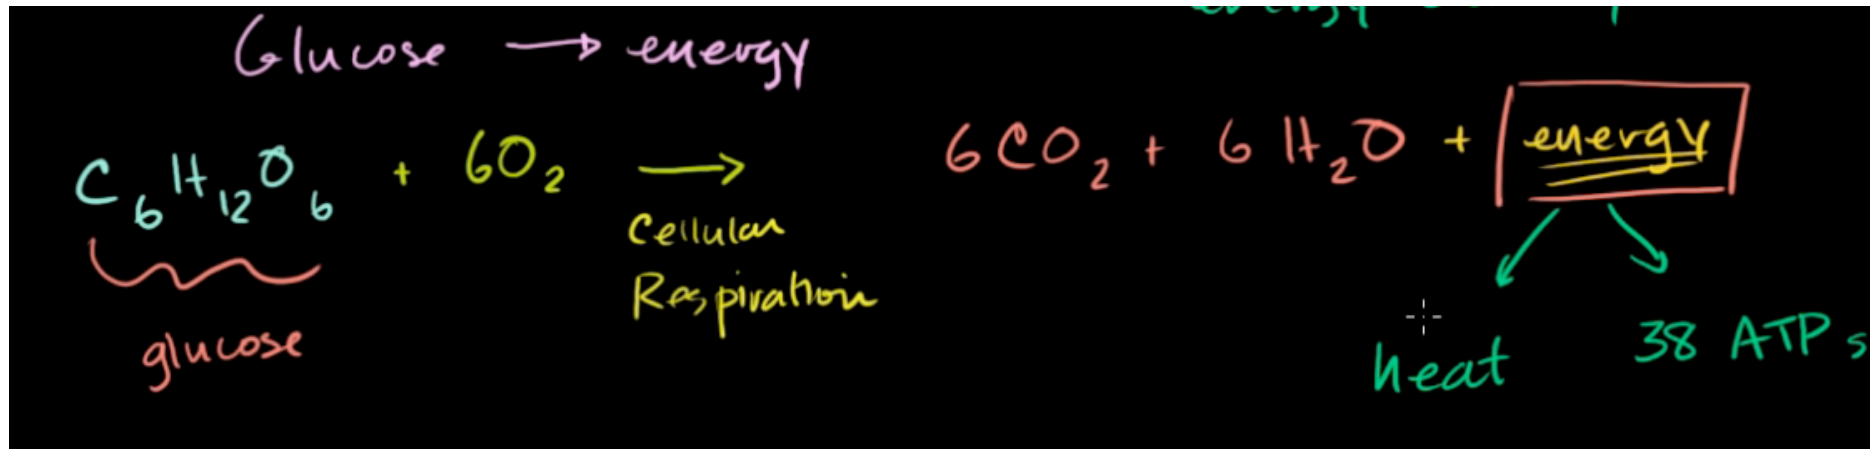 Glucose → energy
C6H12O6 + 6O2 → 6CO2 + 6H2O + energy
Cellular
Respiration
glucose
heat
38 ATPs